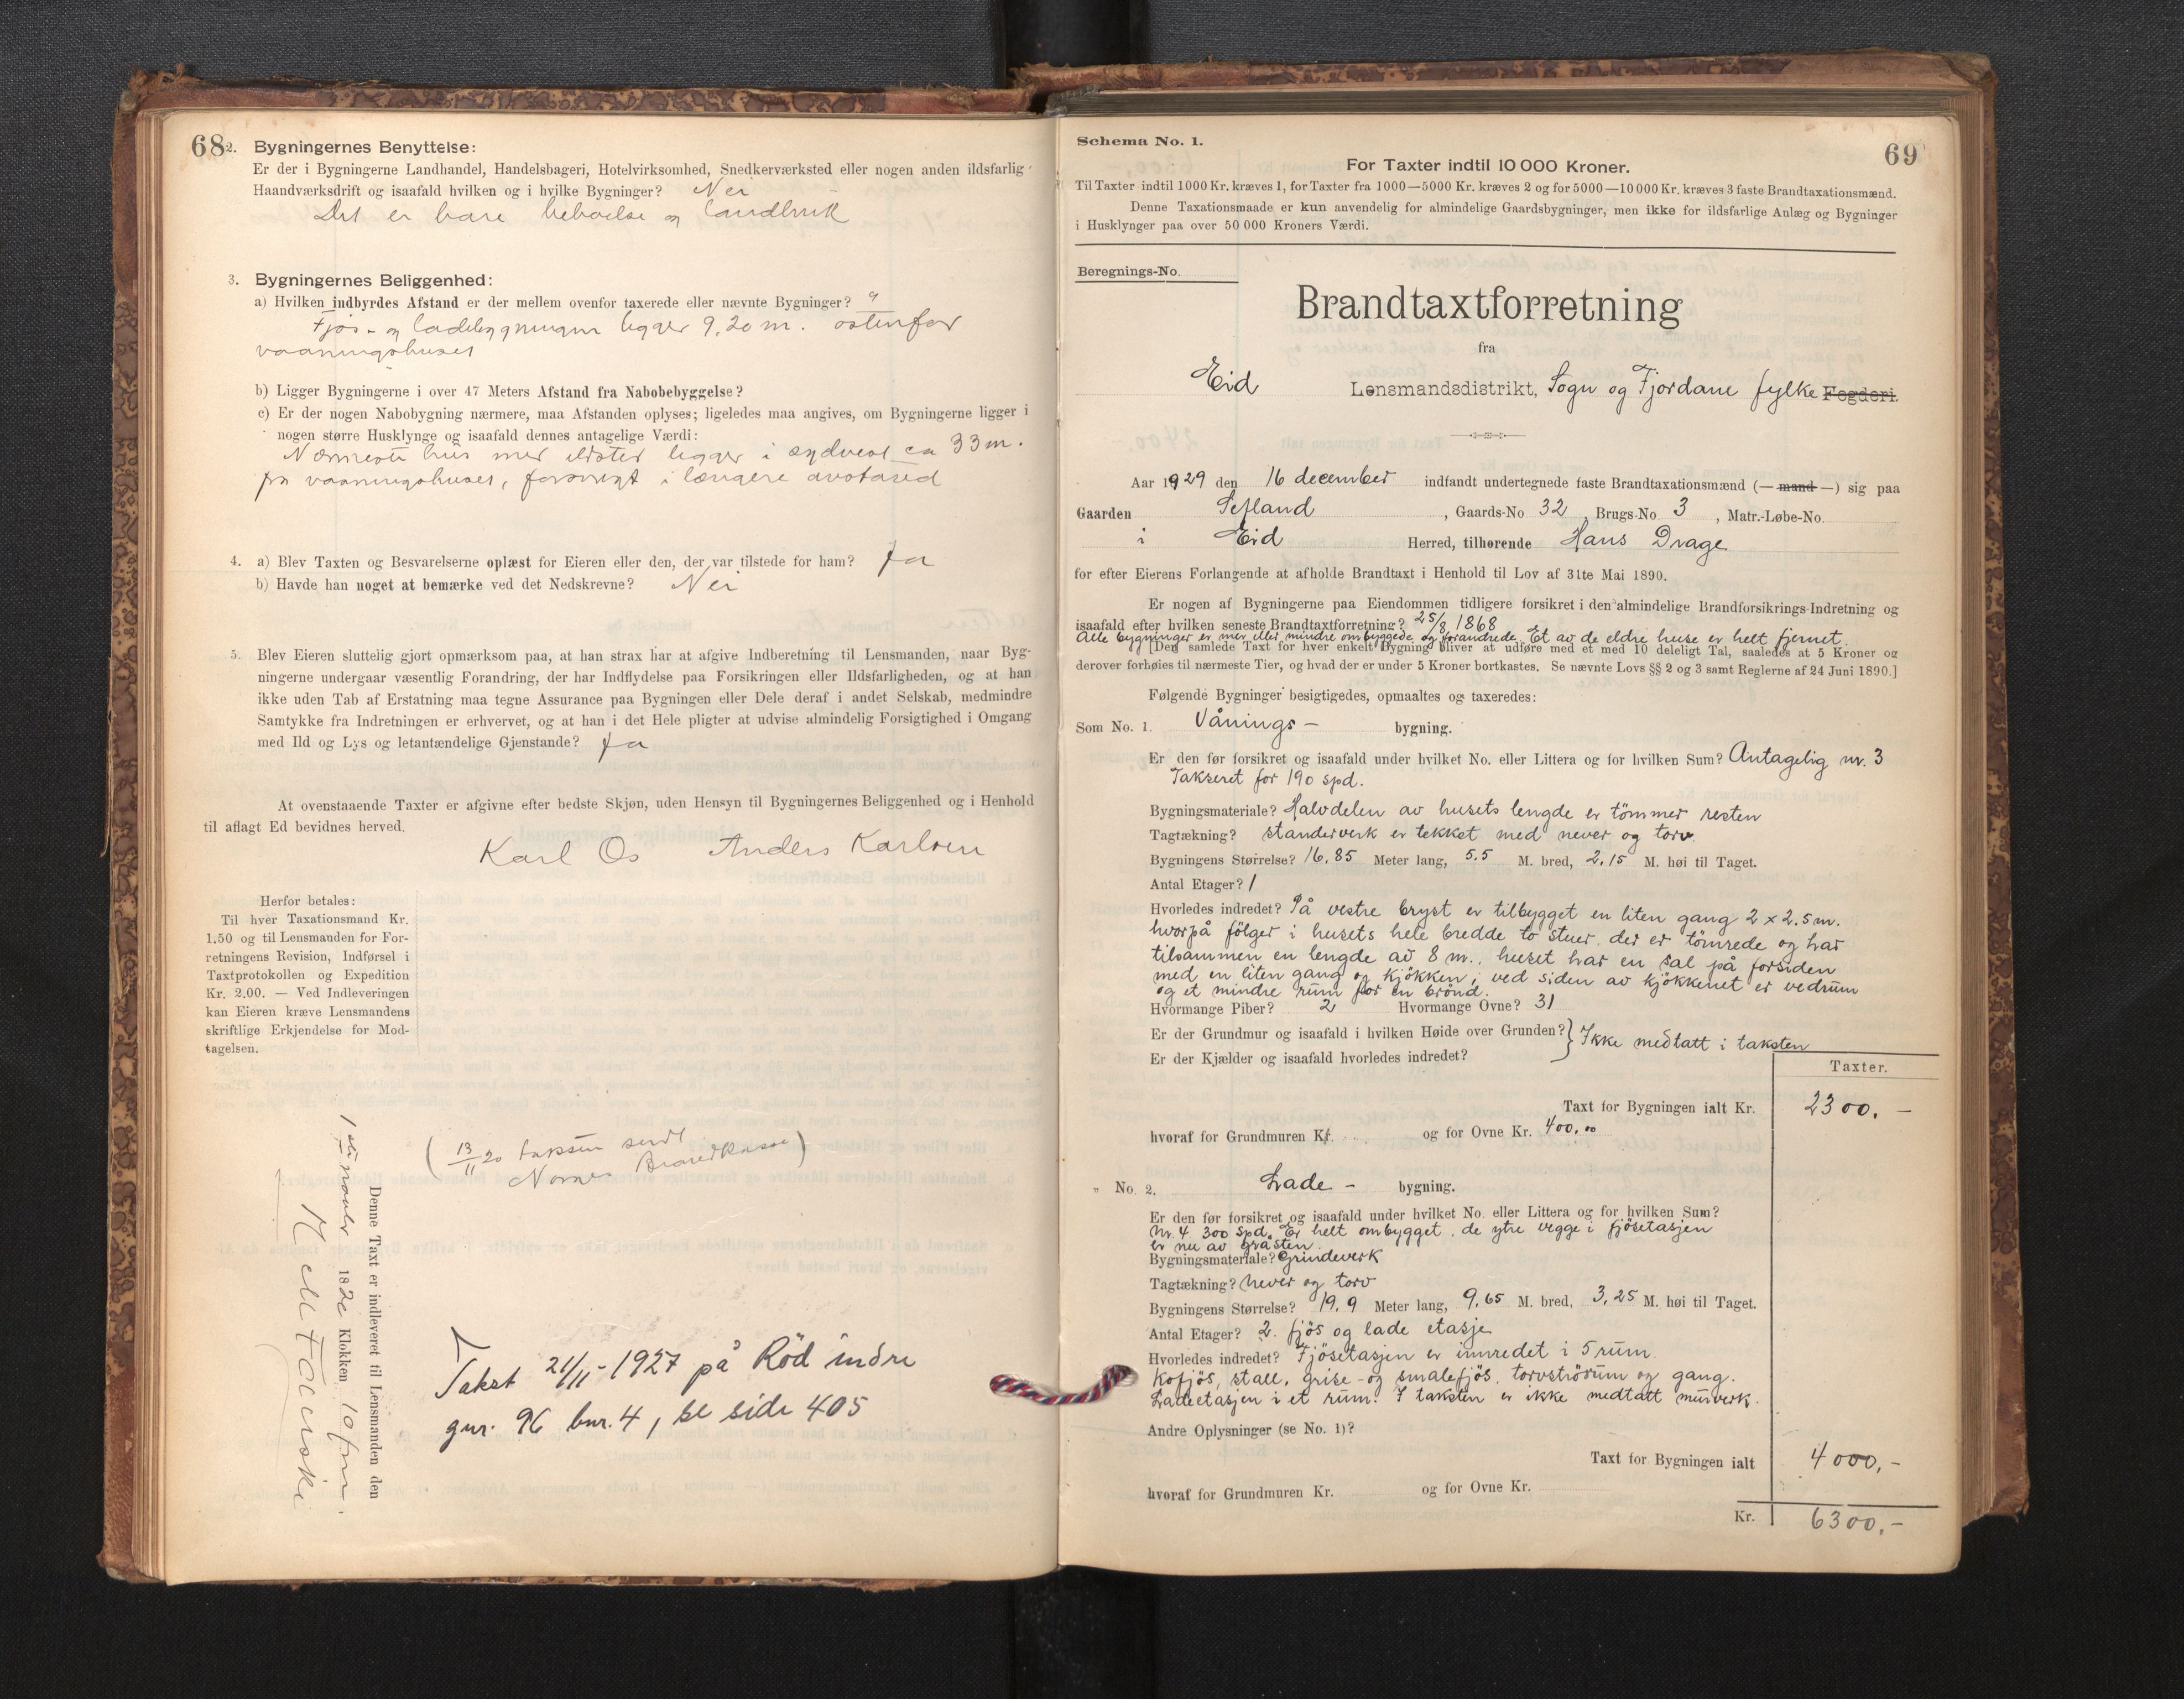 68
2. Bygningernes Benyttelse:
Er der i Bygningerne Landhandel, Handelsbageri, Hotelvirksomhed, Snedkerværksted eller nogen anden ildsfarlig
Haandværksdrift og isaafald hvilken og i hvilke Bygninger? Nei
Det er bare beboelse og landbruk
3. Bygningernes Beliggenhed:
a) Hvilken indbyrdes Afstand er der mellem ovenfor taxerede eller nævnte Bygninger?
Fjøs- og ladebygningen ligger 9,20 m. østenfor
vaaningshuset
b) Ligger Bygningerne i over 47 Meters Afstand fra Nabobebyggelse?
c) Er der nogen Nabobygning nærmere, maa Afstanden oplyses; ligeledes maa angives, om Bygningerne ligger i
nogen større Husklynge og isaafald dennes antagelige Værdi:
Nærmeste hus med ildsted ligger i sydvest ca 33 m.
fra vaaningshuset, forøvrigt i længere avstand
4. a) Blev Taxten og Besvarelserne oplæst for Eieren eller den, der var tilstede for ham? Ja
b) Havde han noget at bemærke ved det Nedskrevne? Nei
5. Blev Eieren sluttelig gjort opmærksom paa, at han strax har at afgive Indberetning til Lensmanden, naar Byg-
ningerne undergaar væsentlig Forandring, der har Indflydelse paa Forsikringen eller Ildsfarligheden, og at han
ikke uden Tab af Erstatning maa tegne Assurance paa Bygningen eller Dele deraf i andet Selskab, medmindre
Samtykke fra Indretningen er erhvervet, og at han i det Hele pligter at udvise almindelig Forsigtighed i Omgang
med Ild og Lys og letantændelige Gjenstande? Ja
At ovenstaaende Taxter er afgivne efter bedste Skjøn, uden Hensyn til Bygningernes Beliggenhed og i Henhold
til aflagt Ed bevidnes herved.
Karl Os Anders Karlsen
Herfor betales:
Til hver Taxationsmand Kr.
1.50 og til Lensmanden for For-
retningens Revision, Indførsel i
Taxtprotokollen og Expedition
Kr. 2,00. — Ved Indleveringen
kan Eieren kræve Lensmandens
skriftlige Erkjendelse for Mod-
tagelsen.
(13/11 20 taksten sendt
Norges Brandkasse)
Denne Taxt er indleveret til Lensmanden den
1ste novbr 1820 Klokken 10 fm.
Takst 21/11-1927 på Rød indre
gnr. 96 bnr. 4, se side 405
69
Schema No. 1.
For Taxter indtil 10 000 Kroner.
Til Taxter indtil 1000 Kr. kræves 1, for Taxter fra 1000—5000 Kr. kræves 2 og for 5000—10 000 Kr. kræves 3 faste Brandtaxationsmænd.
Denne Taxationsmaade er kun anvendelig for almindelige Gaardsbygninger, men ikke for ildsfarlige Anlæg og Bygninger
i Husklynger paa over 50 000 Kroners Værdi.
Beregnings-No.
Brandtaxtforretning
fra
Eid Lensmandsdistrikt, Sogn og Fjordane fylke Fogderi.
Aar 1929 den 16 december indfandt undertegnede faste Brandtaxationsmænd (— mand —) sig paa
Gaarden Sefland, Gaards-No 32, Brugs-No 3, Matr.-Løbe-No.
i Eid Herred, tilhørende Hans Drage
for efter Eierens Forlangende at afholde Brandtaxt i Henhold til Lov af 31te Mai 1890.
Er nogen af Bygningerne paa Eiendommen tidligere forsikret i den almindelige Brandforsikrings-Indretning og
isaafald efter hvilken seneste Brandtaxtforretning? 25/8 1868
Alle bygninger er mer eller mindre ombyggede og forandrede. Et av de eldre huse er helt fjernet.
[Den samlede Taxt for hver enkelt Bygning bliver at udføre med et med 10 deleligt Tal, saaledes at 5 Kroner og
derover forhøies til nærmeste Tier, og hvad der er under 5 Kroner bortkastes. Se nævnte Lovs §§ 2 og 3 samt Reglerne af 24 Juni 1890.]
Følgende Bygninger besigtigedes, opmaaltes og taxeredes:
Som No. 1. Vånings- bygning.
Er den før forsikret og isaafald under hvilket No. eller Littera og for hvilken Sum? Antagelig nr. 3
Takseret for 190 spd.
Bygningsmateriale? Halvdelen av husets lengde er tømmer resten
Tagtækning? standerverk er tekket med never og torv.
Bygningens Størrelse? 16,85 Meter lang, 5.5 M. bred, 2,15 M. høi til Taget.
Antal Etager? 1
Hvorledes indredet? På vestre bryst er tilbygget en liten gang 2 x 2.5 m.
hvorpå følger i husets hele bredde to stuer. der er tømrede og har
tilsammen en lengde av 8 m., huset har en sal på forsiden
med en liten gang og kjøkken; ved siden av kjøkkenet er vedrum
og et mindre rum for en brønd.
Hvormange Piber? 2 Hvormange Ovne? 31
Er der Grundmur og isaafald i hvilken Høide over Grunden?
Er der Kjælder og isaafald hvorledes indredet? } Ikke medtatt i taksten
Taxter.
Taxt for Bygningen ialt Kr. 2300.-
hvoraf for Grundmuren Kr. og for Ovne Kr. 400.00
„ No. 2. Lade- bygning.
Er den før forsikret og isaafald under hvilket No. eller Littera og for hvilken Sum?
Nr. 4. 300 spd. Er helt ombygget. de ytre vegge i fjøsetasjen
er nu av gråsten.
Bygningsmateriale? Grindeverk
Tagtækning? Never og torv
Bygningens Størrelse? 19.9 Meter lang, 9,65 M. bred, 3,25 M. høi til Taget.
Antal Etager? 2. fjøs og lade etasje
Hvorledes indredet? Fjøsetasjen er innredet i 5 rum.
Kofjøs, stall, grise- og smalefjøs, torvstrørum og gang.
Ladeetasjen i et rum. I taksten er ikke medtatt murverk.
Andre Oplysninger (se No. 1)?
Taxt for Bygningen ialt 4000,-
hvoraf for Grundmuren Kr. og for Ovne Kr.
Kr. 6300,-